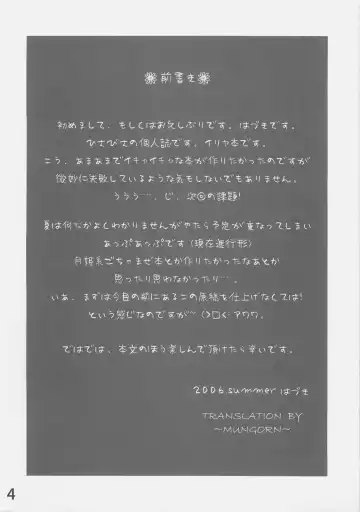 前書き
初めまして、もしくはお久しぶりです。はづきです。
ひさびさの個人誌です。イリヤ本です。
こう、あまあまでイチャイチャな本が作りたかったのですが
微妙に失敗しているような気もしないでもありません。
うううー…、じ、次回の課題!
夏は何だかよくわかりませんがやたら予定が重なってしまい
あっぷあっぷです(現在進行形)
月姫系ごちゃまぜ本とか作りたかったなあとか
思ったり思わなかったり…。
いあ、まずは今目の前にあるこの原稿を仕上げなくては!
という感じなのですが~(>□<;アワワ。
ではでは、本文のほう楽しんで頂けたら幸いです。
2006.summer はづき
TRANSLATION BY
~MUNGORN~
4